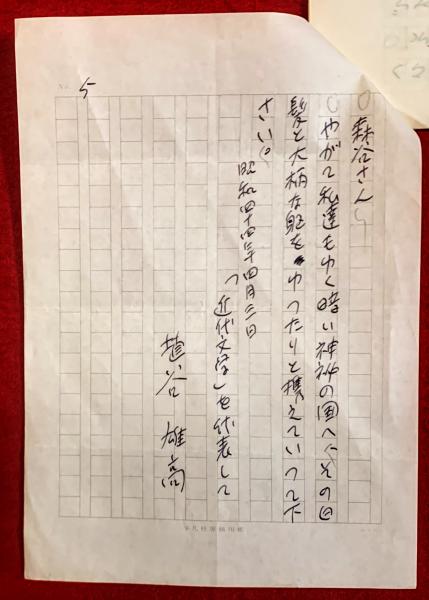 No. 5
森谷さん
やがて私達もゆく暗い神秘の国へ、その白
髪と大柄な躯をゆったりと携えていって下
さい。
昭和四十四年四月三日
「近代文学」を代表して
埴谷 雄高